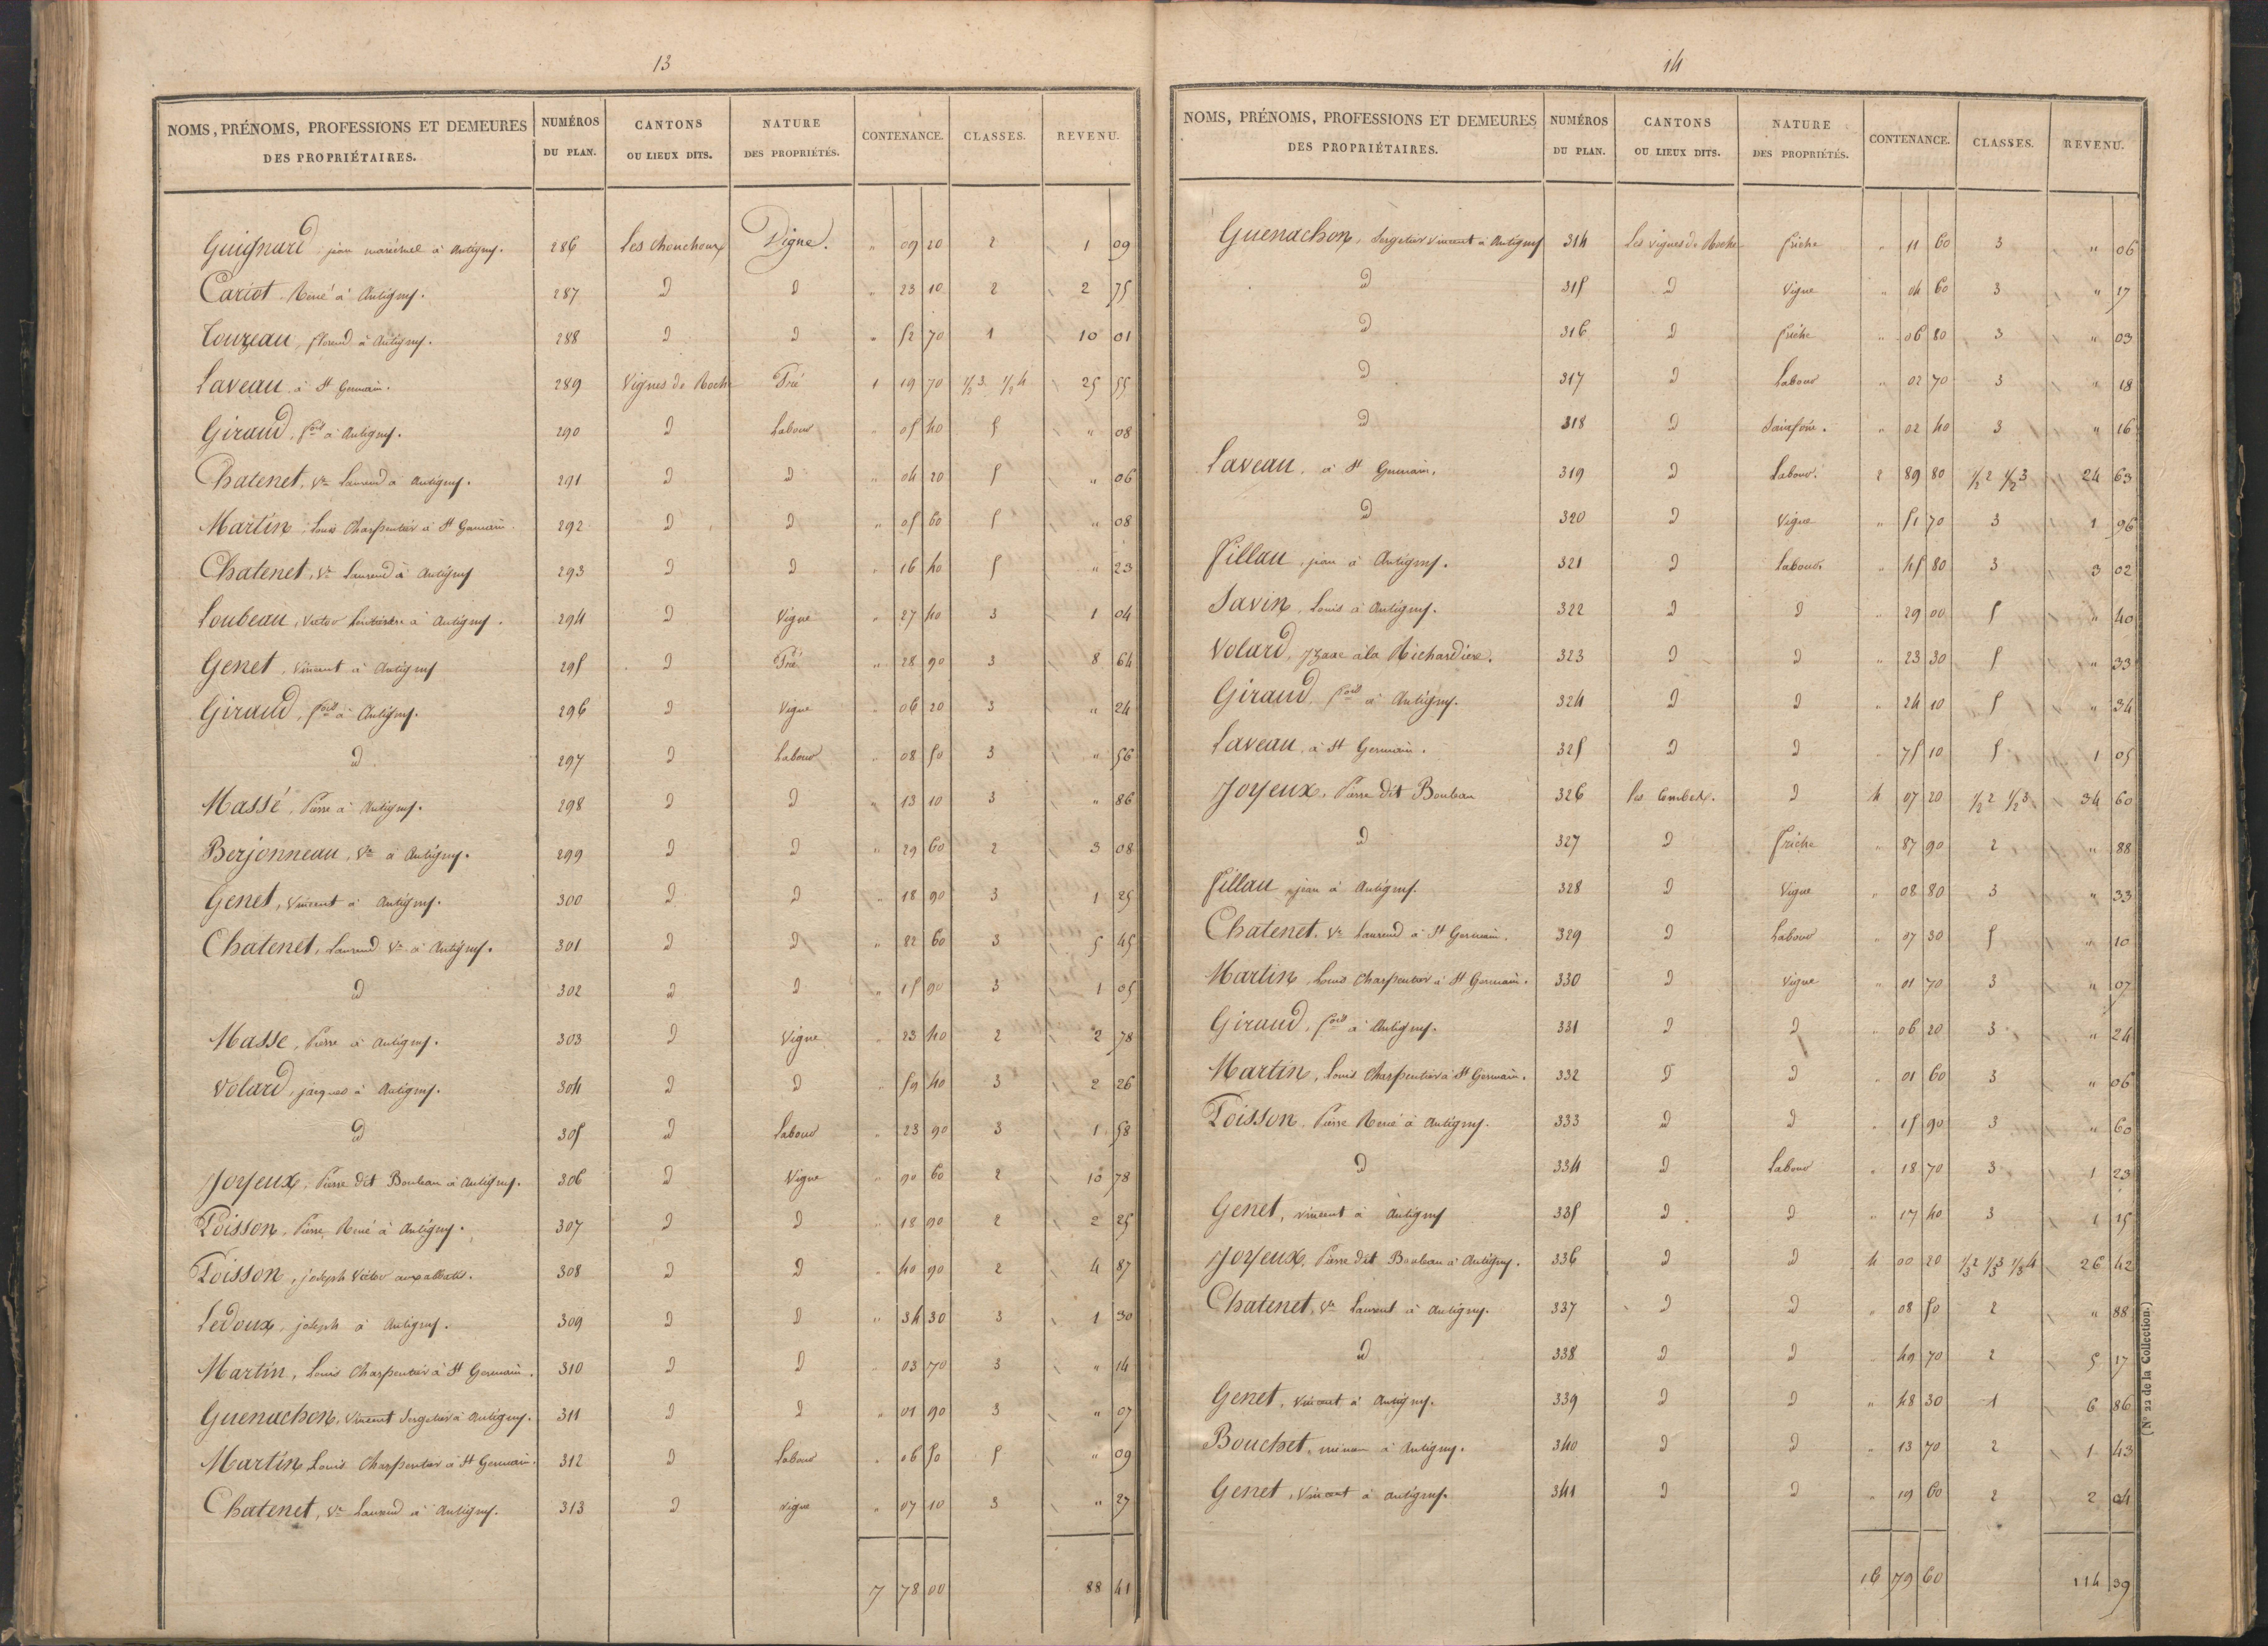 13
NOMS, PRÉNOMS, PROFESSIONS ET DEMEURES DES PROPRIÉTAIRES. NUMÉROS DU PLAN. CANTONS OU LIEUX DITS. NATURE DES PROPRIÉTÉS. CONTENANCE. CLASSES. REVENU.
Guignard jean maréchal à Antigny. 286 Les Chouchoux Vigne. " 09 20 2 1 09
Cariot René à Antigny. 287 D D " 23 10 2 2 75
Touzeau, florend à Antigny. 288 D D " 52 70 1 10 01
Laveau à St Germain. 289 Vignes de Roche Pré 1 19 70 1/2 3 1/2 4 25 55
Giraud, à Antigny. 290 D Labour " 05 40 5 " 08
Chatenet, Ve Laurend à Antigny. 291 D D " 04 20 5 " 06
Martin Louis Charpentier à St Germain 292 D D " 05 60 5 " 08
Chatenet, Ve Laurend à Antigny 293 D D " 16 40 5 " 23
Loubeau, Victor à Antigny. 294 D Vigne " 27 40 3 1 04
Genet, Vincent à Antigny 295 D Pré " 28 90 3 8 64
Giraud, à Antigny. 296 D Vigne " 06 20 3 " 24
D 297 D Labour " 08 50 3 " 56
Massé, Pierre à Antigny. 298 D D " 13 10 3 " 86
Berjonneau, Ve à Antigny. 299 D D " 29 60 2 3 08
Genet, Vincent à Antigny. 300 D D " 18 90 3 1 25
Chatenet, Laurend Ve à Antigny. 301 D D " 82 60 3 5 45
D 302 D D " 15 90 3 1 05
Masse, Pierre à Antigny. 303 D Vigne " 23 40 2 2 78
Volard, jacques à Antigny. 304 D D " 59 40 3 2 26
D 305 D Labour " 23 90 3 1 58
Joyeux, Pierre dit Bouleau à Antigny. 306 D Vigne " 90 60 2 10 78
Poisson, Pierre René à Antigny. 307 D D " 18 90 2 2 25
Poisson, joseph Victor 308 D D " 40 90 2 4 87
Ledoux, joseph à Antigny. 309 D D " 34 30 3 1 30
Martin, Louis Charpentier à St Germain. 310 D D " 03 70 3 " 14
Guenachon, Vincent Sergetier à Antigny. 311 D D " 01 90 3 " 07
Martin Louis Charpentier à St Germain. 312 D Labour " 06 50 5 " 09
Chatenet, Ve Laurend à Antigny. 313 D vigne " 07 10 3 " 27
7 78 00 88 41
14
NOMS, PRÉNOMS, PROFESSIONS ET DEMEURES DES PROPRIÉTAIRES. NUMÉROS DU PLAN. CANTONS OU LIEUX DITS. NATURE DES PROPRIÉTÉS. CONTENANCE. CLASSES. REVENU.
Guenachon, Sergetier Vincent à Antigny 314 Les vignes de Roche friche " 11 60 3 " 06
D 315 D Vigne " 04 60 3 " 17
D 316 D friche " 06 80 3 " 03
D 317 D Labour " 02 70 3 " 18
D 318 D Sainfoin. " 02 40 3 " 16
Laveau, à St Germain. 319 D Labour. 2 89 80 1/2 2 1/2 3 24 63
D 320 D Vigne " 51 70 3 1 96
Fillau, jean à Antigny. 321 D Labour " 45 80 3 3 02
Savin, Louis à Antigny. 322 D D " 29 00 5 " 40
Volard, Izaac à la Richardière. 323 D D " 23 30 5 " 33
Giraud, à Antigny. 324 D D " 24 10 5 " 34
Laveau, à St Germain. 325 D D " 75 10 5 1 05
Joyeux, Pierre dit Bouleau 326 Les Combes. D 4 07 20 1/2 2 1/2 3 34 60
D 327 D Friche " 87 90 2 " 88
Fillau, jean à Antigny. 328 D Vigne " 08 80 3 " 33
Chatenet, Ve Laurend à St Germain. 329 D Labour " 07 30 5 " 10
Martin, Louis Charpentier à St Germain. 330 D Vigne " 01 70 3 " 07
Giraud, à Antigny. 331 D D " 06 20 3 " 24
Martin, Louis Charpentier à St Germain. 332 D D " 01 60 3 " 06
Poisson, Pierre René à Antigny. 333 D D " 15 90 3 " 60
D 334 D Labour " 18 70 3 1 23
Genet, vincent à Antigny 335 D D " 17 40 3 1 15
Joyeux, Pierre dit Bouleau à Antigny. 336 D D 4 00 20 1/3 2 1/3 3 1/3 4 26 42
Chatenet, Ve Laurent à Antigny. 337 D D " 08 50 2 " 88
D 338 D D " 49 70 2 5 17
Genet, Vincent à Antigny. 339 D D " 48 30 1 6 86
Bouchet, à Antigny. 340 D D " 13 70 2 1 43
Genet, Vincent à Antigny. 341 D D " 19 60 2 2 04
16 79 60 114 39
(N° 22 de la Collection.)